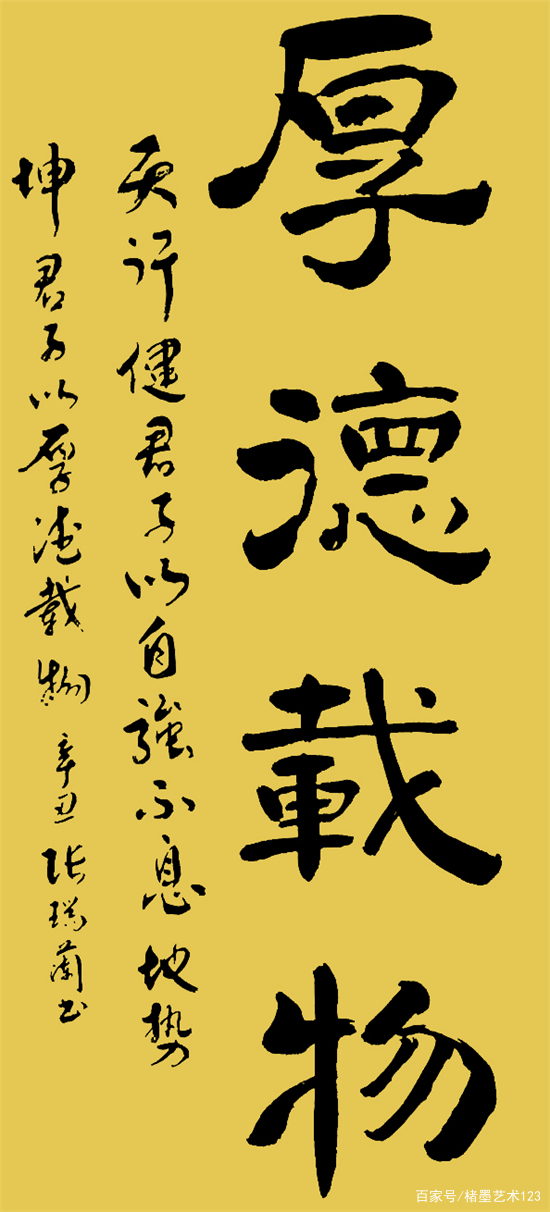 厚德载物
天行健君子以自強不息地势
坤君子以厚德载物辛丑张瑞兰书
百家号/楮墨艺术123